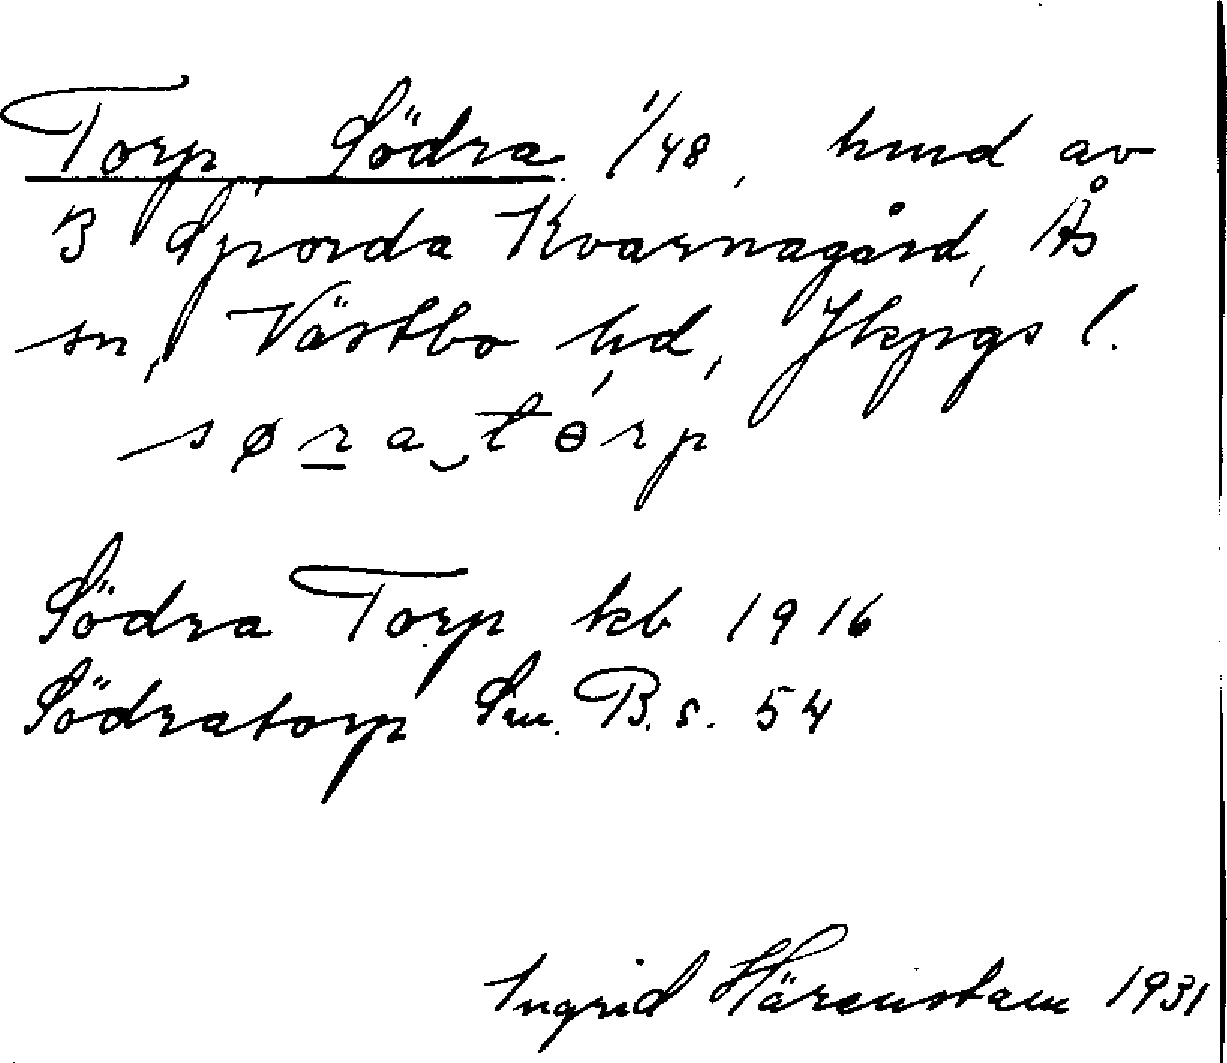 Torp, Södra 1/48, hmd av
B Sporda Kvarnagård, Ås
sn, Västbo hd, Jkpgs l.
søra‿tɵ́rp
Södra Torp kb 1916
Södratorp Sm. B. s. 54
Ingrid Härenstam 1931